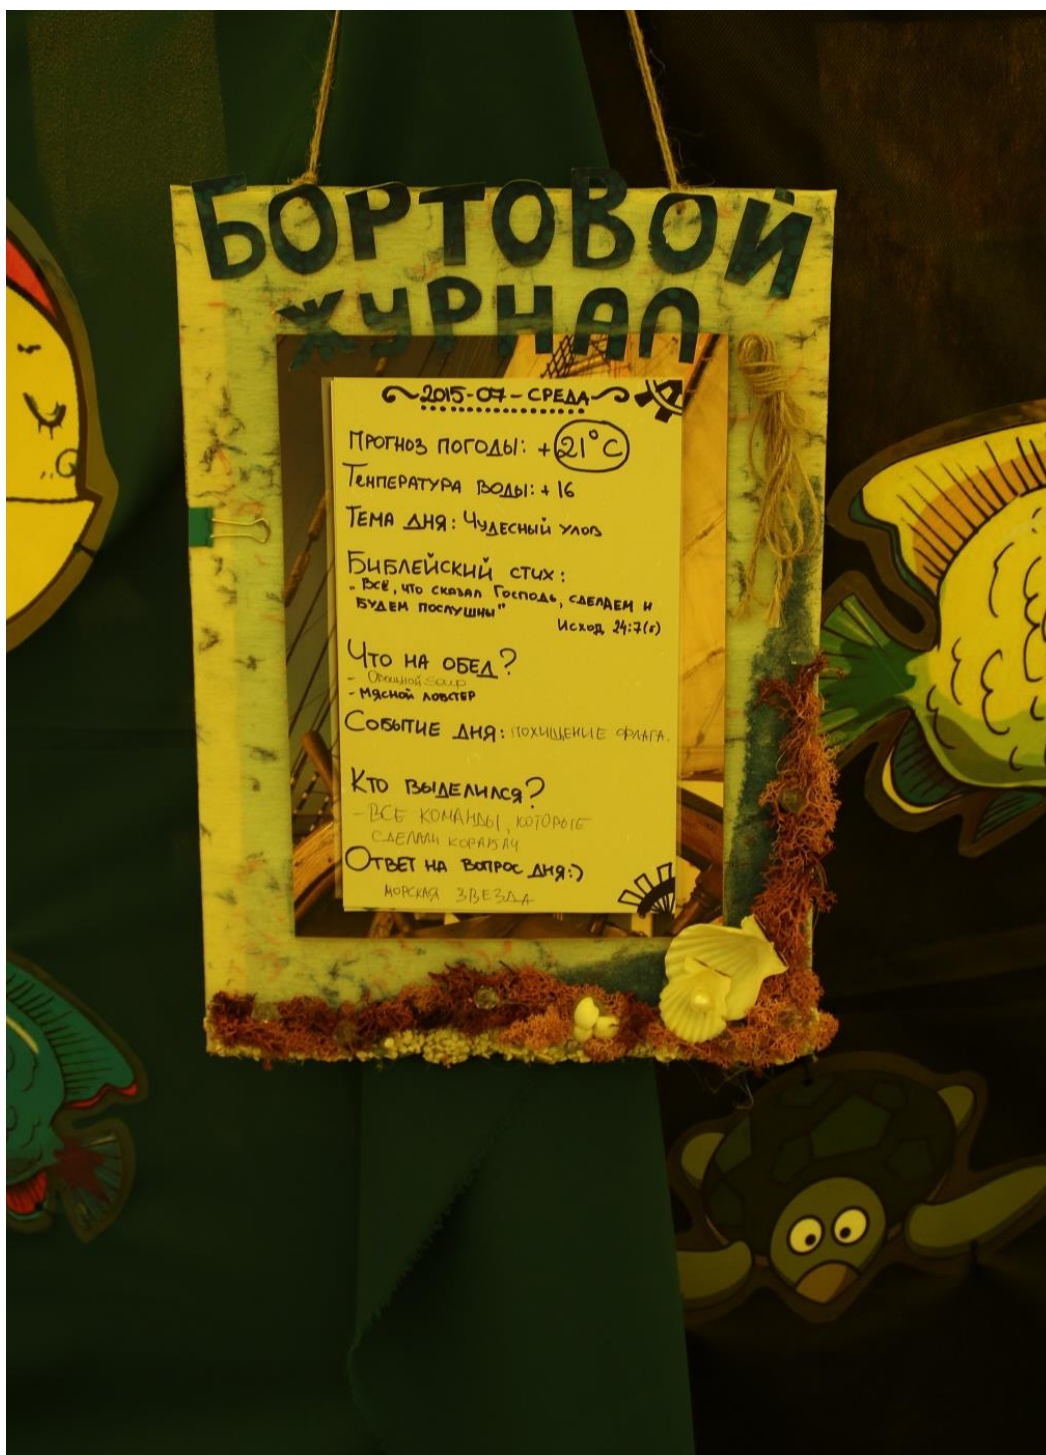 БОРТОВОЙ
ЖУРНАЛ
2015-07-СРЕДА
ПРОГНОЗ ПОГОДЫ: +21°C
ТЕМПЕРАТУРА ВОДЫ: +16
ТЕМА ДНЯ: ЧУДЕСНЫЙ УЛОВ
БИБЛЕЙСКИЙ СТИХ:
"ВСЁ, ЧТО СКАЗАЛ ГОСПОДЬ, СДЕЛАЕМ И
БУДЕМ ПОСЛУШНЫ"
ИСХОД 24:7(б)
ЧТО НА ОБЕД?
- Овощной soup
- МЯСНОЙ ЛОБСТЕР
СОБЫТИЕ ДНЯ: ПОХИЩЕНИЕ ФЛАГА.
КТО ВЫДЕЛИЛСЯ?
- ВСЕ КОМАНДЫ, КОТОРЫЕ
СДЕЛАЛИ КОРАБЛИ
ОТВЕТ НА ВОПРОС ДНЯ:)
МОРСКАЯ ЗВЕЗДА